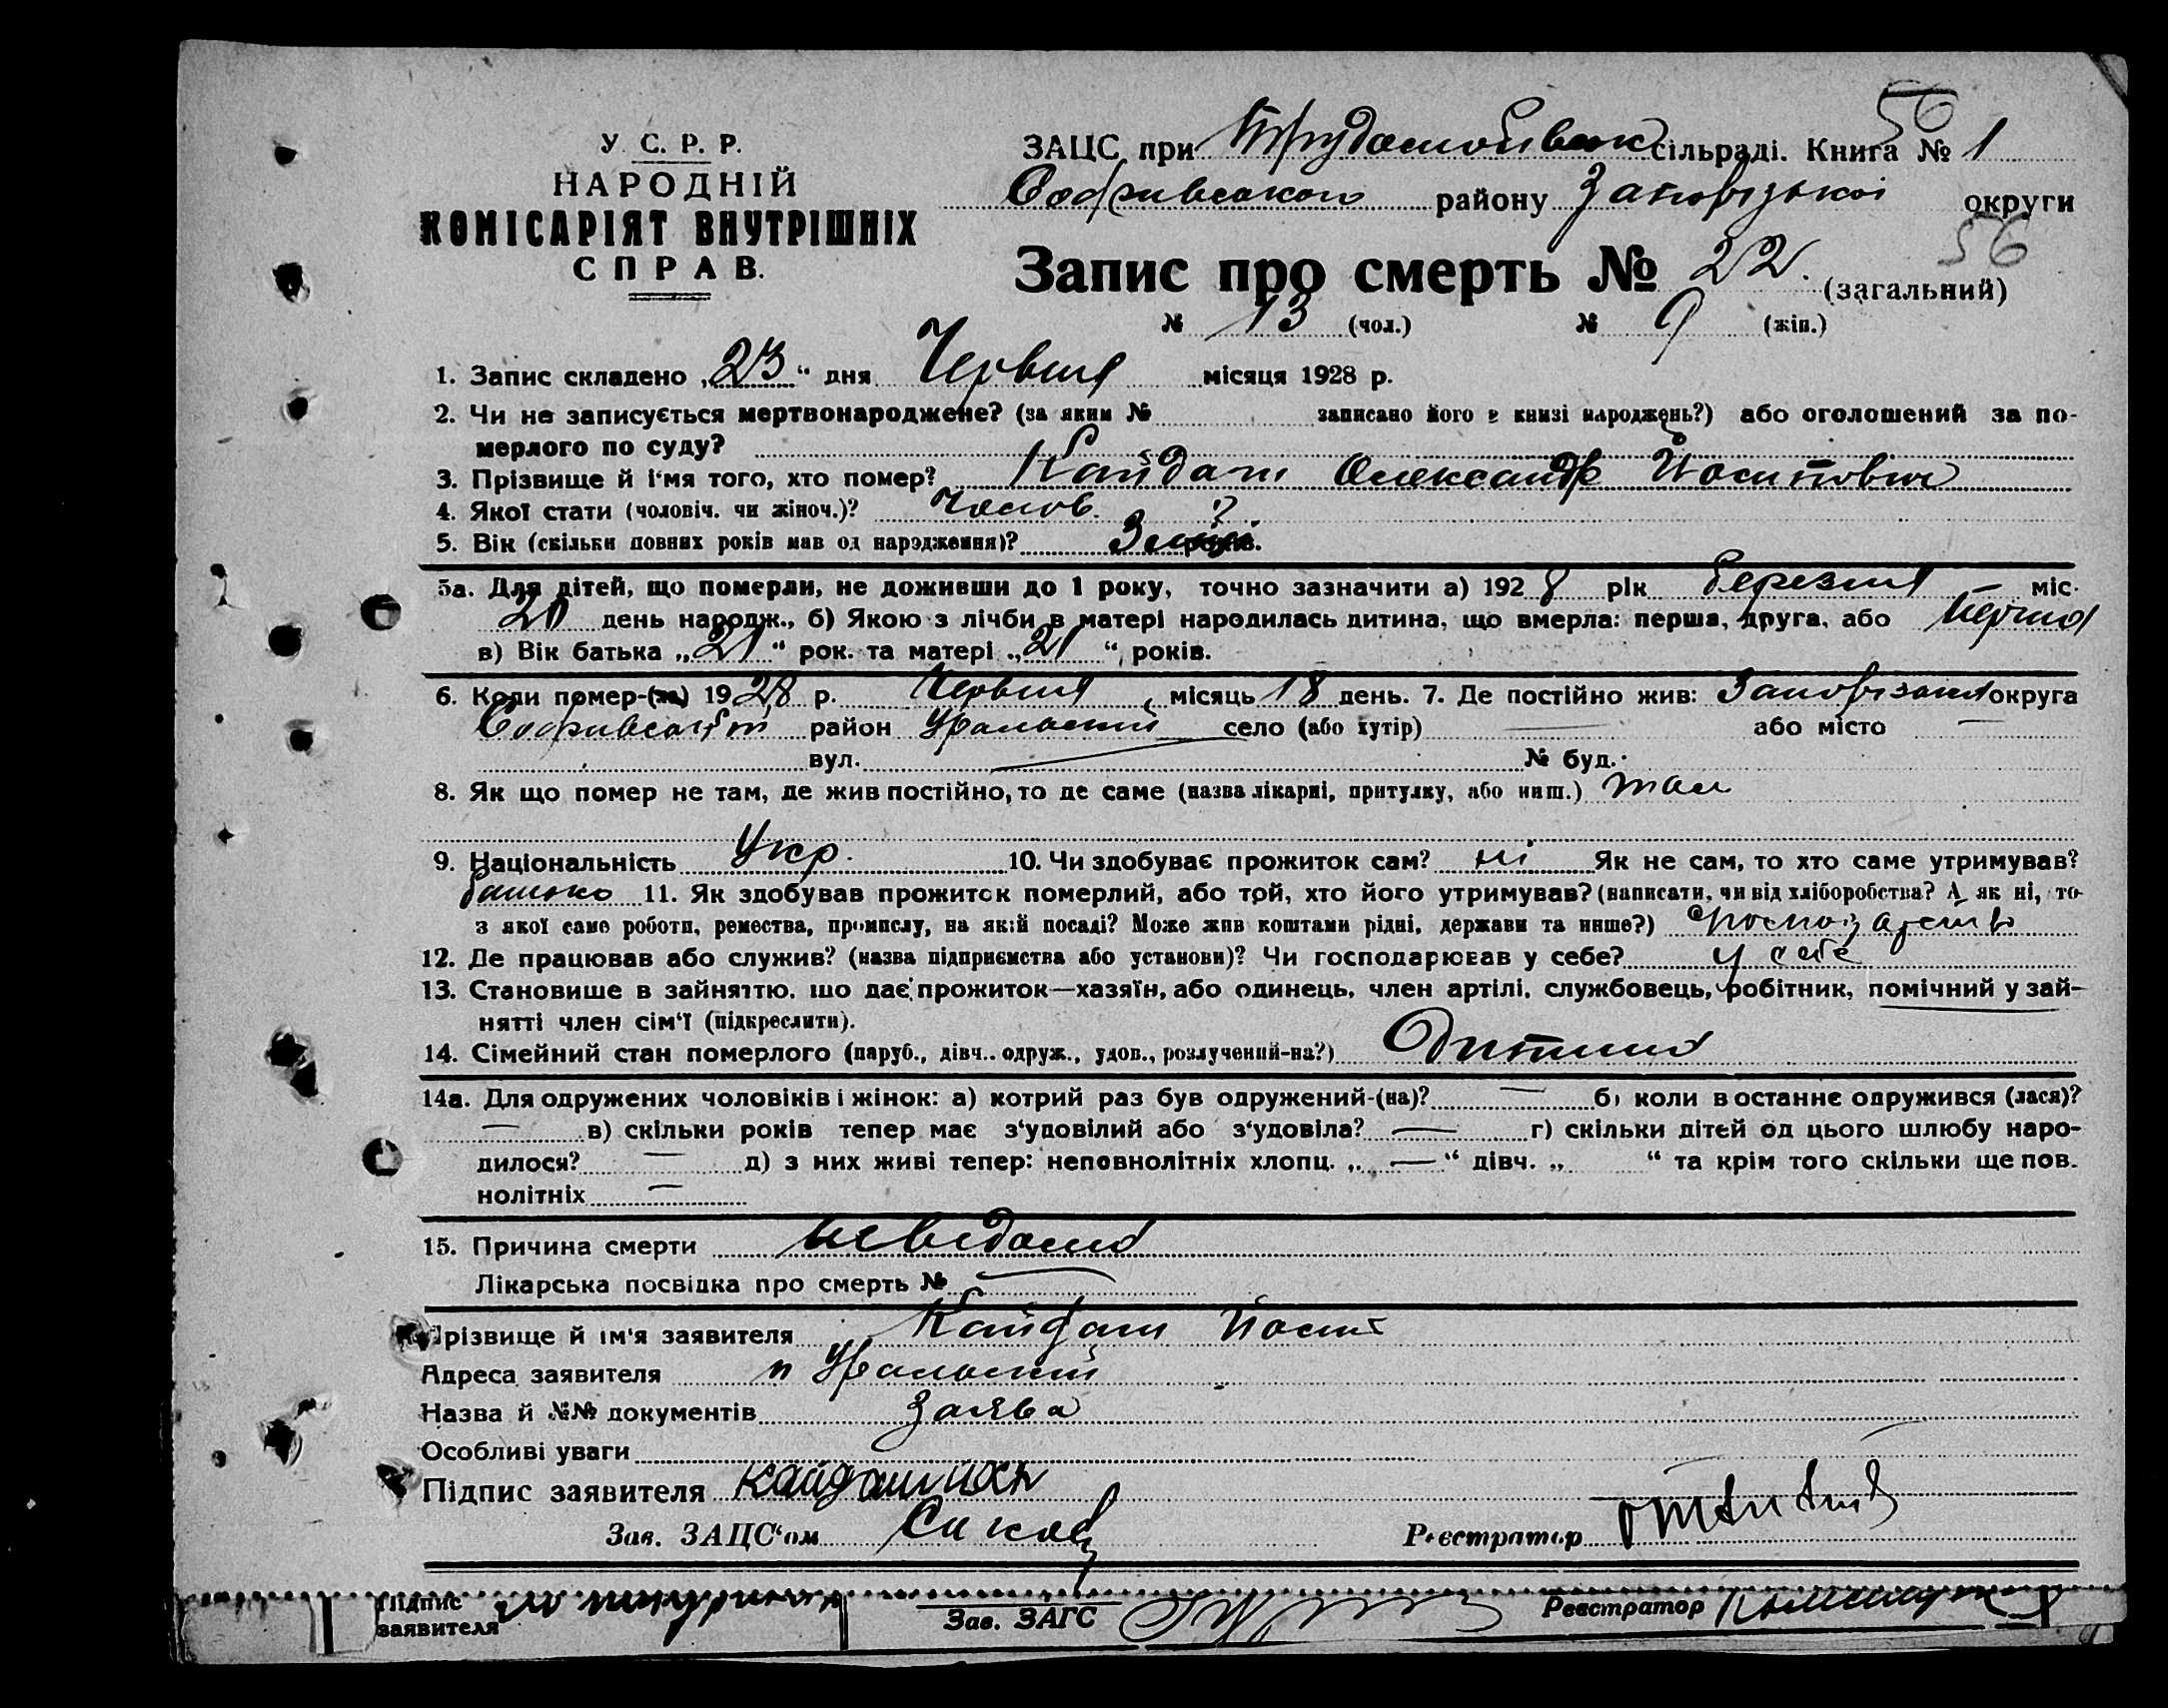 56
У. С. Р. Р.
НАРОДНІЙ
КОМІСАРІЯТ ВНУТРІШНІХ
СПРАВ.
ЗАЦС при сільраді. Книга № 1
Софиівського району Запорізької округи
56
Запис про смерть № 22. (загальний)
№ 13 (чол.) № 9 (жін.)
1. Запис складено „23“ дня Червня місяця 1928 р.
2. Чи не записується мертвонароджене? (за яким № записано його в книзі народжень?) або оголошений за по-
мерлого по суду?
3. Прізвище й ім'я того, хто помер? Кайдаш Олександр Йосипович
4. Якої стати (чоловіч. чи жіноч.)? Чолов.
5. Вік (скільки повних років мав од народження)? 3
5а. Для дітей, що померли, не доживши до 1 року, точно зазначити а) 1928 рік березня міс.
20 день народж., б) Якою з лічби в матері народилась дитина, що вмерла: перша, друга, або перша
в) Вік батька „21“ рок. та матері „21“, років.
6. Коли помер-(ла) 1928 р. Червня місяць 18 день. 7. Де постійно жив: Запорізька округа
район Уральский село (або хутір) — або місто —
вул. № буд.
8. Як що помер не там, де жив постійно, то де саме (назва лікарні, притулку, або инш.) там
9. Національність Укр. 10. Чи здобуває прожиток сам? ні Як не сам, то хто саме утримував?
батько 11. Як здобував прожиток померлий, або той, хто його утримував? (написати, чи від хліборобства? А як ні, то
з якої саме роботи, ремества, промислу, на якій посаді? Може жив коштами рідні, держави та инше?)
12. Де працював або служив? (назва підприємства або установи)? Чи господарював у себе? у себе
13. Становище в зайняттю, що дає прожиток—хазяїн, або одинець, член артілі, службовець, робітник, помічний у зай-
нятті член сім'ї (підкреслити).
14. Сімейний стан померлого (паруб., дівч.. одруж., удов., розлучений-на?) Дитина
14а. Для одружених чоловіків і жінок: а) котрий раз був одружений-(на)? — б) коли в останнє одружився (лася)?
— в) скільки років тепер має з'удовілий або з'удовіла? — г) скільки дітей од цього шлюбу наро-
дилося? — д) з них живі тепер: неповнолітніх хлопц. „—“ дівч. „ “ та крім того скільки ще пов.
нолітніх —
15. Причина смерти невідома
Лікарська посвідка про смерть № —
Прізвище й ім'я заявителя Кайдаш Йосип
Адреса заявителя п Уральский
Назва й №№ документів Заява
Особливі уваги
Підпис заявителя Кайдаш
Зав. ЗАЦС'ом Реєстратор
Підпис
заявителя
Зав. ЗАГС Реєстратор